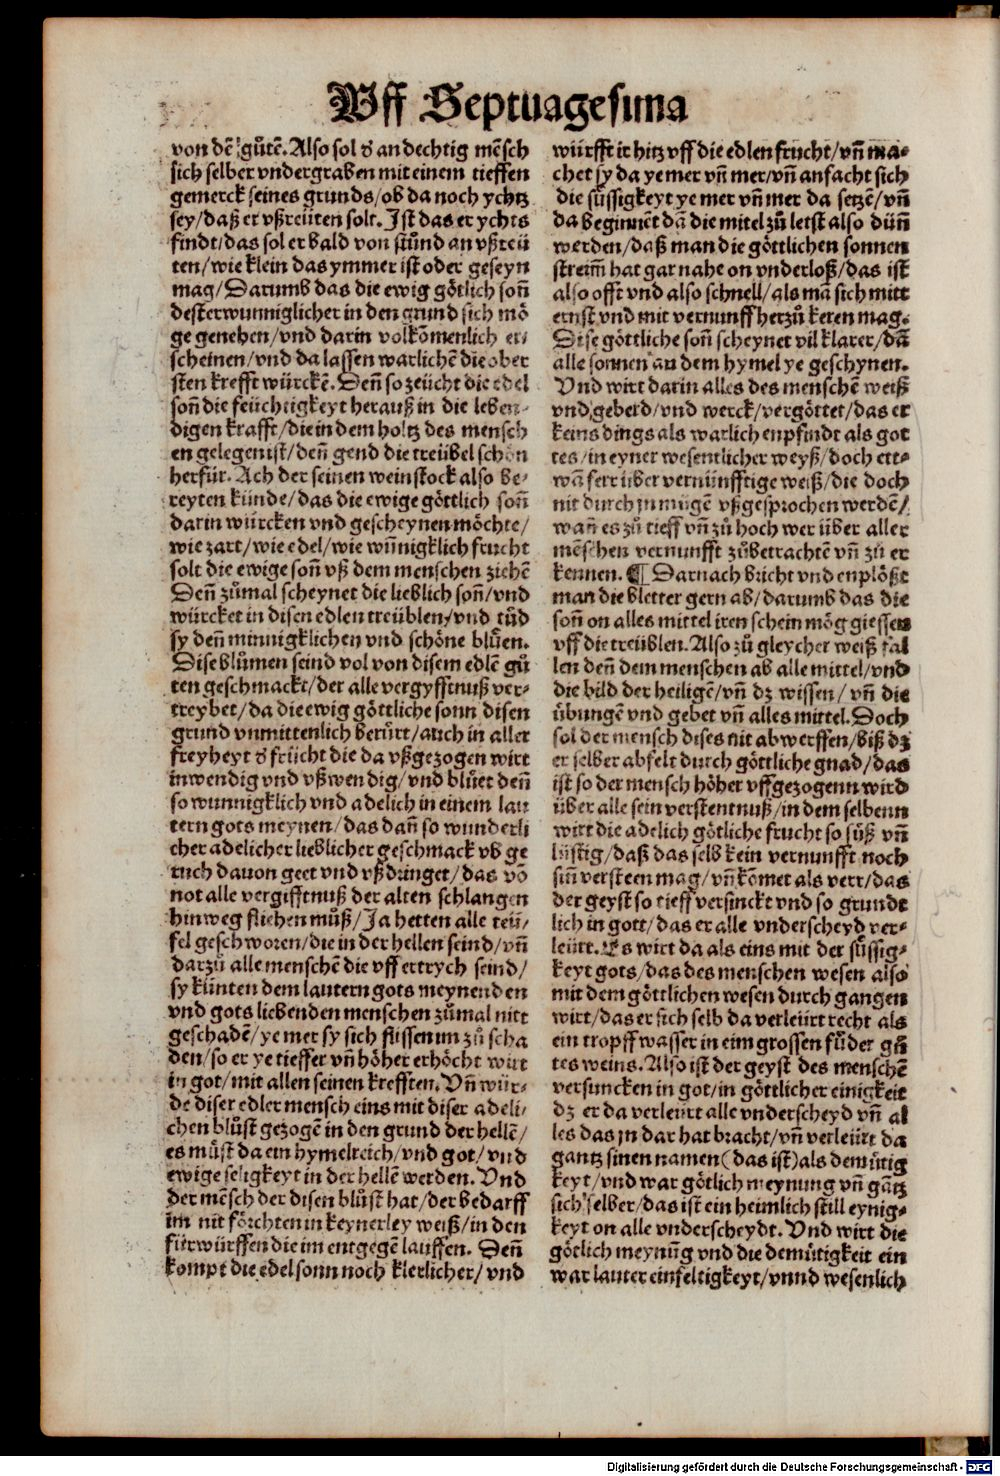 Vff Septuagesima
von dē gůtē. Also sol d' andechtig mēsch
sich selber vndergraben mit einem tieffen
gemerck seines grunds/ ob da noch ychtz
sey/ daß er vßreüten solt. Ist das er ychts
findt/ das sol er bald von stůnd an vßreü
ten/ wie klein das ymmer ist oder geseyn
mag/ Darumb das die ewig götlich soñ
desterwunniglicher in den grund sich mö
ge genehen/ vnd darin volkōmenlich er⸗
scheinen/ vnd da lassen warlichē die ober
sten krefft würckē. Deñ so zeücht die edel
soñ die feüchtigkeyt herauß in die leben⸗
digen krafft/ die in dem holtz des mensch
en gelegen ist/ deñ gend die treübel schön
herfür. Ach der seinen weinstock also be⸗
reyten künde/ das die ewige göttlich soñ
darin würcken vnd gescheynen möchte/
wie zart/ wie edel/ wie wūnigklich frucht
solt die ewige soñ vß dem menschen ziehē
Deñ zůmal scheynet die lieblich soñ/ vnd
würcket in disen edlen treüblen/ vnd tůd
sy deñ minnigklichen vnd schöne blůen.
Dise blůmen seind vol von disem edlē gů
ten geschmackt/ der alle vergyfftnuß ver⸗
treybet/ da die ewig göttliche sonn disen
grund vnmittenlich berürt/ auch in aller
freyheyt d' frücht die da vßgezogen wirt
inwendig vnd vßwendig/ vnd blůet deñ
so wunnigklich vnd adelich in einem lau
tern gots meynen/ das dañ so wunderli
cher adelicher lieblicher geschmack vß ge
ruch dauon geet vnd vßdringet/ das vō
not alle vergifftnuß der alten schlangen
hinweg fliehen můß/ Ja hetten alle teü⸗
fel geschworen/ die in der hellen seind/ vñ
darzů alle menschē die vff ertrych seind/
sy künten dem lautern gots meynenden
vnd gots liebenden menschen zůmal nitt
geschadē/ ye mer sy sich flissen im zů scha
den/ so er ye tieffer vñ höher erhöcht wirt
in got/ mit allen seinen krefften. Vñ wür⸗
de diser edler mensch eins mit diser adeli⸗
chen blůst gezogē in den grund der hellē/
es můst da ein hymelreich/ vnd got/ vnd
ewige seligkeyt in der hellē werden. Vnd
der mēsch der disen blůst hat/ der bedarff
im nit förchten in keynerley weiß/ in den
fürwürffen die im entgegē lauffen. Deñ
kompt die edel sonn noch klerlicher/ vnd
würfft ir hitz vff die edlen frucht/ vñ ma⸗
chet sy da ye mer vñ mer/ vñ anfacht sich
die süssigkeyt ye mer vñ mer da setzē/ vñ
da beginnēt dā die mitel zů letst also düñ
werden/ daß man die göttlichen sonnen
streim̄ hat gar nahe on vnderloß/ das ist
also offt vnd also schnell/ als mā sich mitt
ernst vnd mit vernunff herzů keren mag.
Dise göttliche soñ scheynet vil klarer/ dā
alle sonnen an dem hymel ye geschynen.
Vnd wirt darin alles des menschē weiß
vnd geberd/ vnd werck/ vergöttet/ das er
keins dings als warlich enpfindt als got
tes/ in eyner wesentlicher weyß/ doch ett⸗
wā ferr über vernünfftige weiß/ die doch
nit durch jn mügē vßgesprochen werdē/
wañ es zů tieff vñ zů hoch wer über aller
mēschen vernunfft zůbetrachtē vñ zů er
kennen. ¶ Darnach bricht vnd enplößt
man die bletter gern ab/ darumb das die
soñ on alles mittel iren schein mög giessen
vff die treüblen. Also zů gleycher weiß fal
len deñ dem menschen ab alle mittel/ vnd
die bild der heiligē/ vñ dz wissen/ vñ die
übungē vnd gebet vñ alles mittel. Doch
sol der mensch dises nit abwerffen/ biß dz
er selber abfelt durch göttliche gnad/ das
ist so der mensch höher vffgezogenn wird
über alle sein verstentnuß/ in dem selbenn
wirt die adelich götliche frucht so süß vñ
lustig/ daß das selb kein vernunfft noch
siñ versteen mag/ vñ kōmet als verr/ das
der geyst so tieff versinckt vnd so grundt
lich in gott/ das er alle vnderscheyd ver⸗
leürt. Es wirt da als eins mit der süssig⸗
keyt gots/ das des menschen wesen also
mit dem göttlichen wesen durch gangen
wirt/ das er sich selb da verleürt recht als
ein tropff wasser in eim grossen fůder gů
tes weins. Also ist der geyst des menschē
versuncken in got/ in göttlicher einigkeit
dz er da verleürt alle vnderscheyd vñ al
les das jn dar hat bracht/ vñ verleürt da
gantz sinen namen (das ist) als demůtig
keyt/ vnd war götlich meynung vñ gātz
sich selber/ das ist ein heimlich still eynig⸗
keyt on alle vnderscheydt. Vnd wirt die
götlich meynūg vnd die demůtigkeit ein
war lauter einfeltigkeyt/ vnnd wesenlich
Digitalisierung gefördert durch die Deutsche Forschungsgemeinschaft - DFG